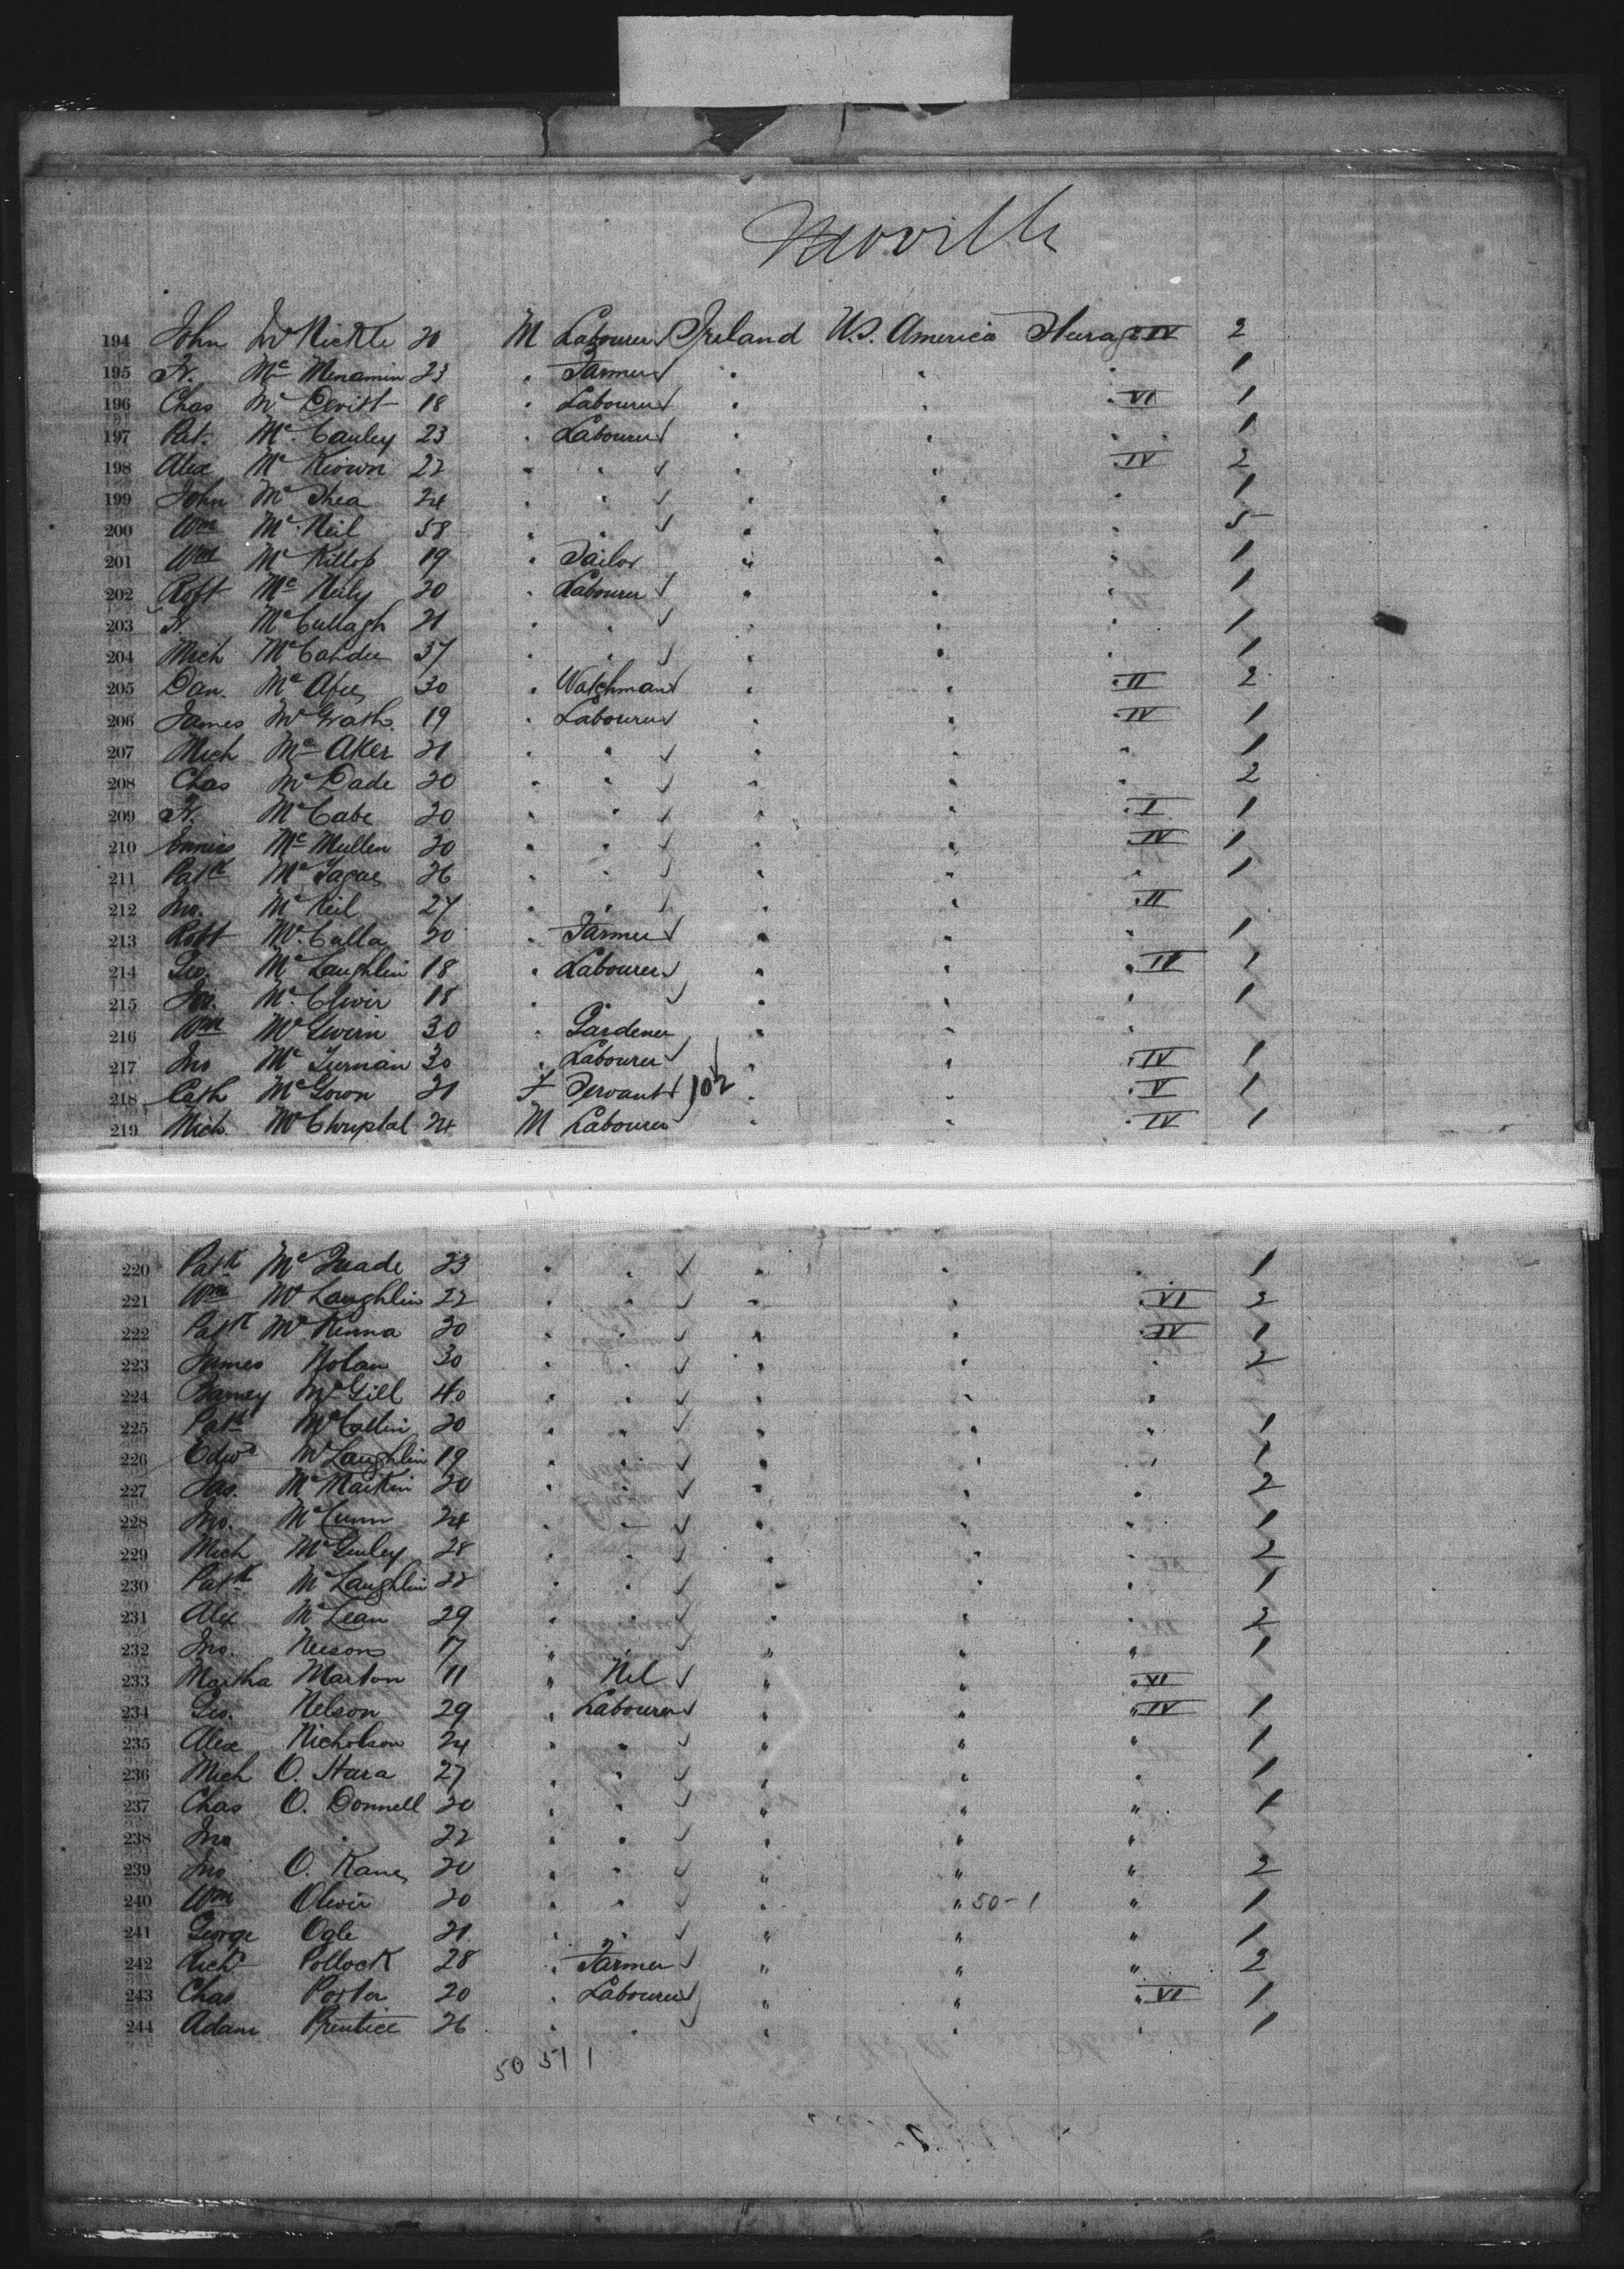 Moville
194 John McNickle 20 M Labourer Ireland U.S. America Steerage IV 2
195 Fr. Mc Menamin 23 " Farmer " " " 1
196 Chas Mc Devitt 18 " Labourer " " " VI 1
197 Pat. Mc Cauley 23 " Labourer " " " 1
198 Alex Mc Keown 22 " " " " " IV 2
199 John Mc Shea 24 " " " " " 1
200 Wm McNeil 58 " " " " " 5
201 Wm Mc Killop 19 " Tailor " " " 1
202 Robt Mc Neily 20 " Labourer " " " 1
203 McCullagh 21 " " " " " 1
204 Mich 37 " " " " " 1
205 Dan. Mc Afee 30 " Watchman " " " II 2
206 James McGrath 19 " Labourer " " " IV 1
207 Mich Mc Aker 21 " " " " " 1
208 Chas McDade 20 " " " " " 2
209 Fr. McCabe 20 " " " " " I 1
210 Mc Mullen 20 " " " " " IV 1
211 Patk McTague 26 " " " " " 1
212 Jno. McNeil 27 " " " " " II
213 Robt McCalla 20 " Farmer " " " 1
214 Geo. McLaughlin 18 " Labourer " " " IV 1
215 18 " " " " 1
216 Wm 30 " Gardener " " "
217 Jno McTiernan 30 " Labourer " " " IV 1
218 Cath McGown 21 F Servant 102 " " " V 1
219 Mich. McChrystal 24 M Labourer " " " IV 1
220 Patk McQuade 23 " " " " " 1
221 Wm McLaughlin 22 " " " " " VI 2
222 Patk McKenna 20 " " " " " IV 1
223 James Nolan 30 " " " " " 2
224 Barney McGill 40 " " " " "
225 Patk 20 " " " " " 1
226 Edwd McLaughlin 19 " " " " " 1
227 Jas. 20 " " " " " 2
228 Jno. McCunn 24 " " " " " 1
229 Mich McGinley 28 " " " " " 2
230 Patk McLaughlin 22 " " " " " 1
231 Alex McLean 29 " " " " " 2
232 Jno. Neeson 17 " " " " " 1
233 Martha Marton 11 " Nil " " " VI
234 Geo. Nelson 29 " Labourer " " " IV 1
235 Alex Nicholson 24 " " " " " 1
236 Mich O. Hara 27 " " " " " 1
237 Chas O. Donnell 20 " " " " " 1
238 Jno " 22 " " " " "
239 Jno O. Kane 20 " " " " " 2
240 Wm Oliver 20 " " " " 50-1 " 1
241 George Ogle 21 " " " " " 1
242 Richd Pollock 28 " Farmer " " " 2
243 Chas Porter 20 " Labourer " " " VI 1
244 Adam Prentice 26 " " " " " 1
50 51 1